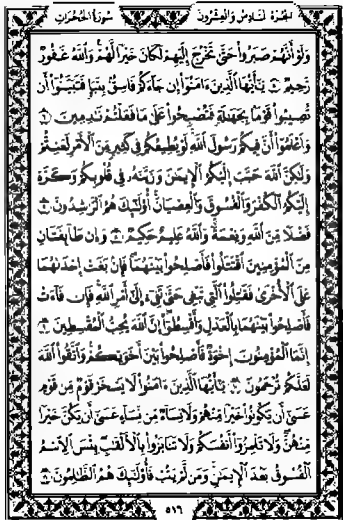 الجزء السادس والعشرون سورة الحجرات
وَلَوْ أَنَّهُمْ صَبَرُوا حَتَّىٰ تَخْرُجَ إِلَيْهِمْ لَكَانَ خَيْرًا لَّهُمْ وَاللَّهُ غَفُورٌ
رَّحِيمٌ ۝ يَا أَيُّهَا الَّذِينَ آمَنُوا إِن جَاءَكُمْ فَاسِقٌ بِنَبَإٍ فَتَبَيَّنُوا أَن
تُصِيبُوا قَوْمًا بِجَهَالَةٍ فَتُصْبِحُوا عَلَىٰ مَا فَعَلْتُمْ نَادِمِينَ ۝
وَاعْلَمُوا أَنَّ فِيكُمْ رَسُولَ اللَّهِ لَوْ يُطِيعُكُمْ فِي كَثِيرٍ مِّنَ الْأَمْرِ لَعَنِتُّمْ
وَلَٰكِنَّ اللَّهَ حَبَّبَ إِلَيْكُمُ الْإِيمَانَ وَزَيَّنَهُ فِي قُلُوبِكُمْ وَكَرَّهَ
إِلَيْكُمُ الْكُفْرَ وَالْفُسُوقَ وَالْعِصْيَانَ أُولَٰئِكَ هُمُ الرَّاشِدُونَ ۝
فَضْلًا مِّنَ اللَّهِ وَنِعْمَةً وَاللَّهُ عَلِيمٌ حَكِيمٌ ۝ وَإِن طَائِفَتَانِ
مِنَ الْمُؤْمِنِينَ اقْتَتَلُوا فَأَصْلِحُوا بَيْنَهُمَا فَإِن بَغَتْ إِحْدَاهُمَا
عَلَى الْأُخْرَىٰ فَقَاتِلُوا الَّتِي تَبْغِي حَتَّىٰ تَفِيءَ إِلَىٰ أَمْرِ اللَّهِ فَإِن فَاءَتْ
فَأَصْلِحُوا بَيْنَهُمَا بِالْعَدْلِ وَأَقْسِطُوا إِنَّ اللَّهَ يُحِبُّ الْمُقْسِطِينَ ۝
إِنَّمَا الْمُؤْمِنُونَ إِخْوَةٌ فَأَصْلِحُوا بَيْنَ أَخَوَيْكُمْ وَاتَّقُوا اللَّهَ
لَعَلَّكُمْ تُرْحَمُونَ ۝ يَا أَيُّهَا الَّذِينَ آمَنُوا لَا يَسْخَرْ قَوْمٌ مِّن قَوْمٍ
عَسَىٰ أَن يَكُونُوا خَيْرًا مِّنْهُمْ وَلَا نِسَاءٌ مِّن نِّسَاءٍ عَسَىٰ أَن يَكُنَّ خَيْرًا
مِّنْهُنَّ وَلَا تَلْمِزُوا أَنفُسَكُمْ وَلَا تَنَابَزُوا بِالْأَلْقَابِ بِئْسَ الِاسْمُ
الْفُسُوقُ بَعْدَ الْإِيمَانِ وَمَن لَّمْ يَتُبْ فَأُولَٰئِكَ هُمُ الظَّالِمُونَ ۝
٥١٦